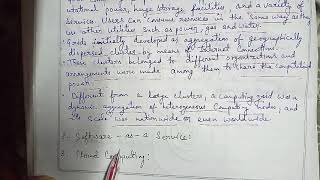 external power, huge storage facilities, and a variety of
services. Users can consume resources in the same way as
use other utilities such as power, gas and water.
• Grids initially developed as aggregation of geographically
dispersed cluster by means of Internet Connections.
• These clusters belonged to different organizations and
arrangements were made among them to share the computational
power.
• Different from a large cluster, a computing grid was a
dynamic aggregation of heterogenous computing nodes, and
its scale was nationwide or even worldwide
Software - as - a Service:
3. Cloud Computing: